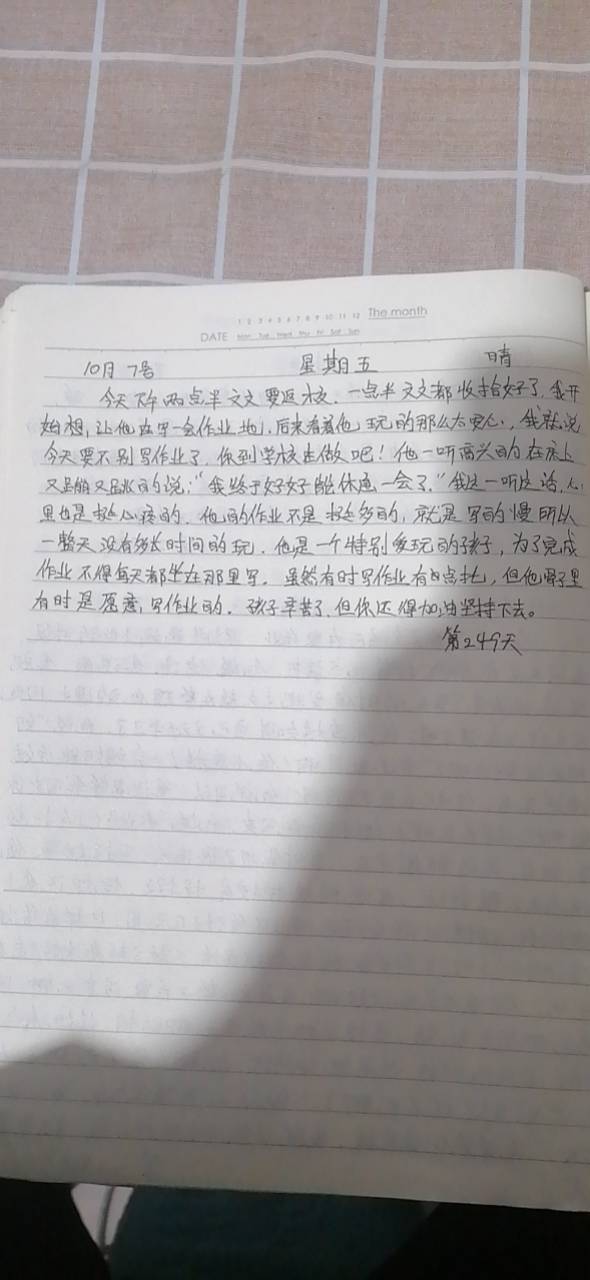 1 2 3 4 5 6 7 8 9 10 11 12 The month
DATE Mon Tue Wed Thu Fri Sat Sun
10月7号 星期五 晴
今天下午两点半文文要返校,一点半文文都收拾好了,我开
始想,让他在写一会作业地,后来看着他玩的那么太安心,我就说
今天要不别写作业了,你到学校去做吧!他一听高兴的在床上
又蹦又跳的说:“我终于好好能休息一会了。”我这一听这话,心
里也是挺心疼的,他的作业不是挺多的,就是写的慢所以
一整天没有多长时间的玩,他是一个特别爱玩的孩子,为了完成
作业不得每天都坐在那里写,虽然有时写作业有点,但他骨子里
有时是愿意写作业的,孩子辛苦了,但你还得加油坚持下去。
第249天